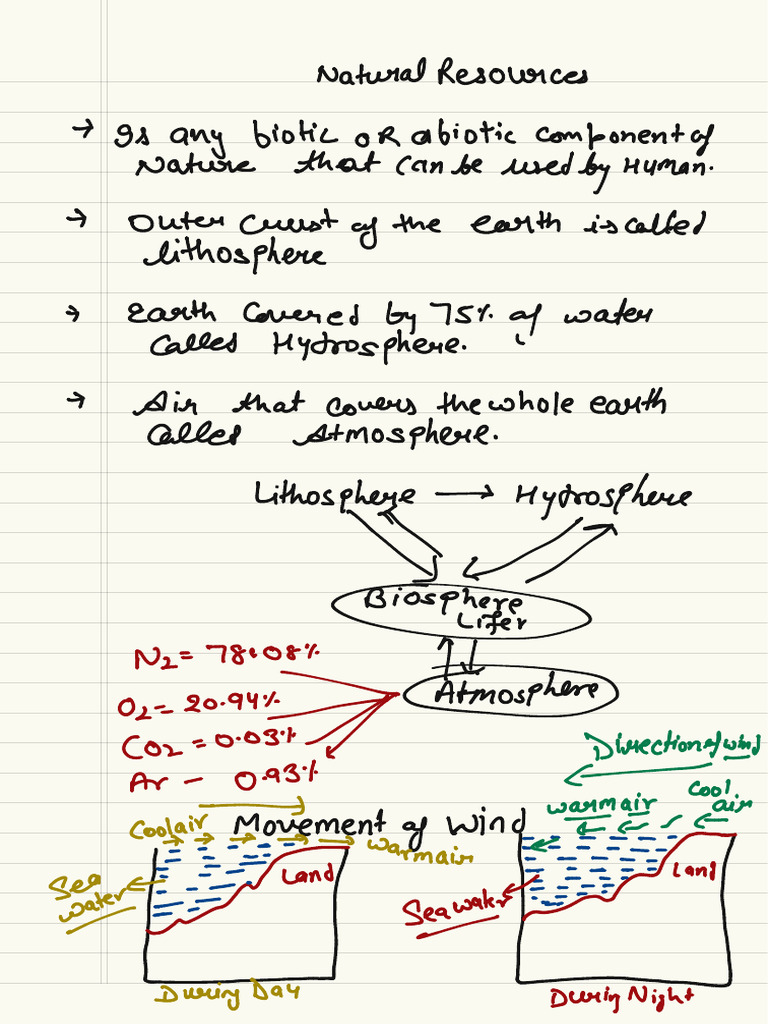 Natural Resources
→ Is any biotic OR abiotic component of
Nature that can be used by Human.
→ Outer Cruust of the earth is called
lithosphere
→ Earth Covered by 75% of water
Called Hydrosphere.
→ Air that covers the whole earth
Called Atmosphere.
Lithosphere → Hydrosphere
Biosphere
Lifer
Atmosphere
N2 = 78.08%
O2 = 20.94%
CO2 = 0.03%
Ar - 0.93%
Direction of wind
Movement of Wind
Cool air
warm air
Sea
water
Land
During Day
warm air
Cool
air
Sea water
Land
During Night